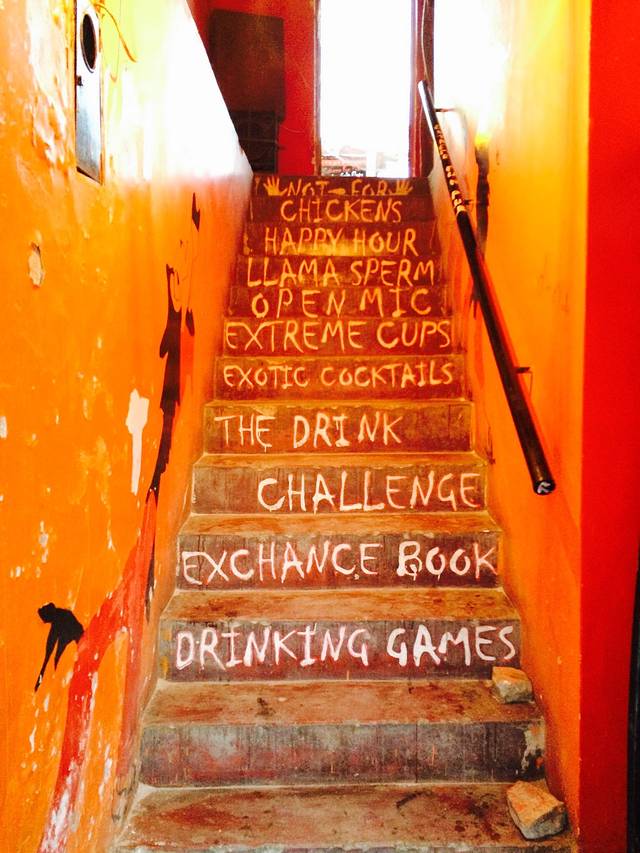 NOT FOR
CHICKENS
HAPPY HOUR
LLAMA SPERM
OPEN MIC
EXTREME CUPS
EXOTIC COCKTAILS
THE DRINK
CHALLENGE
EXCHANCE BOOK
DRINKING GAMES